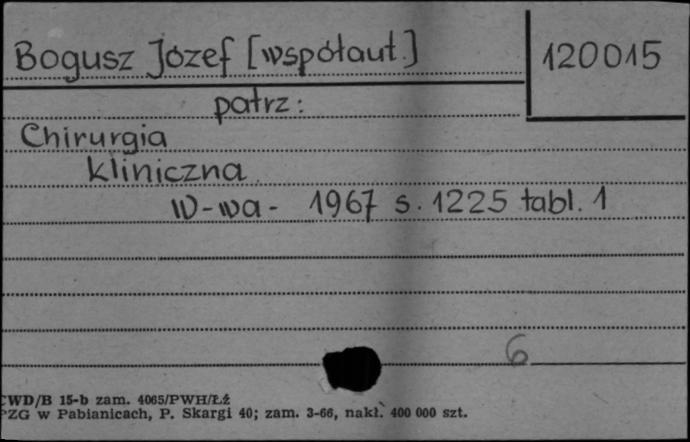 Bogusz Józef [współaut.]
120015
patrz:
Chirurgia
kliniczna.
W-wa- 1967 s. 1225 tabl. 1
6
CWD/B 15-b zam. 4065/PWH/Łź
PZG w Pabianicach, P. Skargi 40; zam. 3-66, nakł. 400 000 szt.